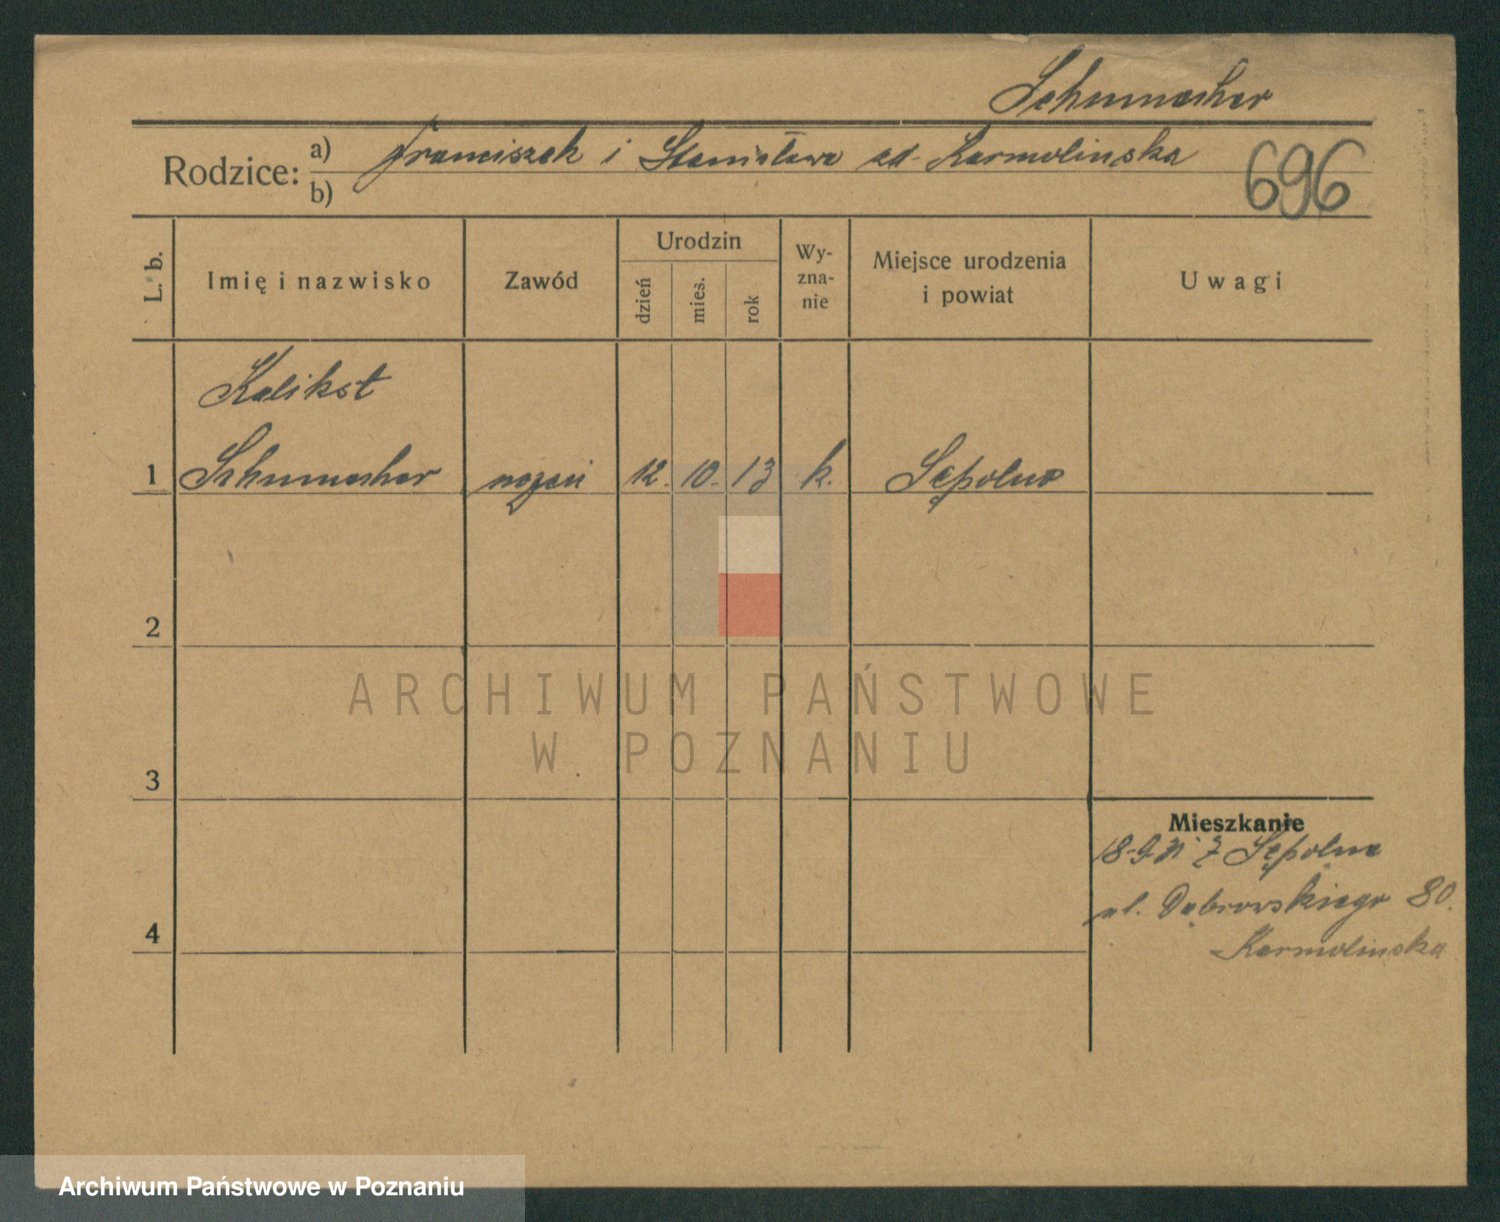 Schumacher
Rodzice: a) Franciszek i Stanisława zd. Karmolinska
b)
696
L. b.
Imię i nazwisko
Zawód
Urodzin
dzień
mies.
rok
Wy-
zna-
nie
Miejsce urodzenia
i powiat
Uwagi
Kalikst
1 Schumacher 12. 10. 13 k. Sępolno
2
3
4
Mieszkanie
z Sępolna
ul. Dąbrowskiego 80.
Karmolinska
ARCHIWUM PAŃSTWOWE
W POZNANIU
Archiwum Państwowe w Poznaniu